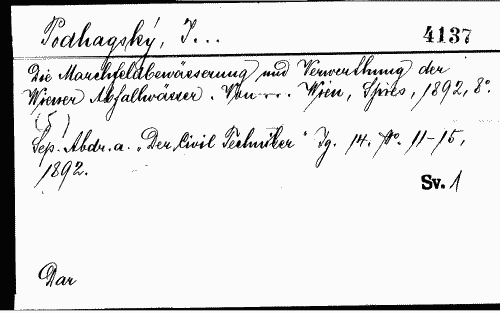 Podhagský, J...
4137
Die Marchfeldbewässerung und Verwerthung der
Wiener Abfallwässer. Von --. Wien, Spies, 1892, 8°.
(5)
Sep. Abdr. a. „Der Civil Techniker" Jg. 14. No. 11-15,
1892.
Sv. 1
Dar